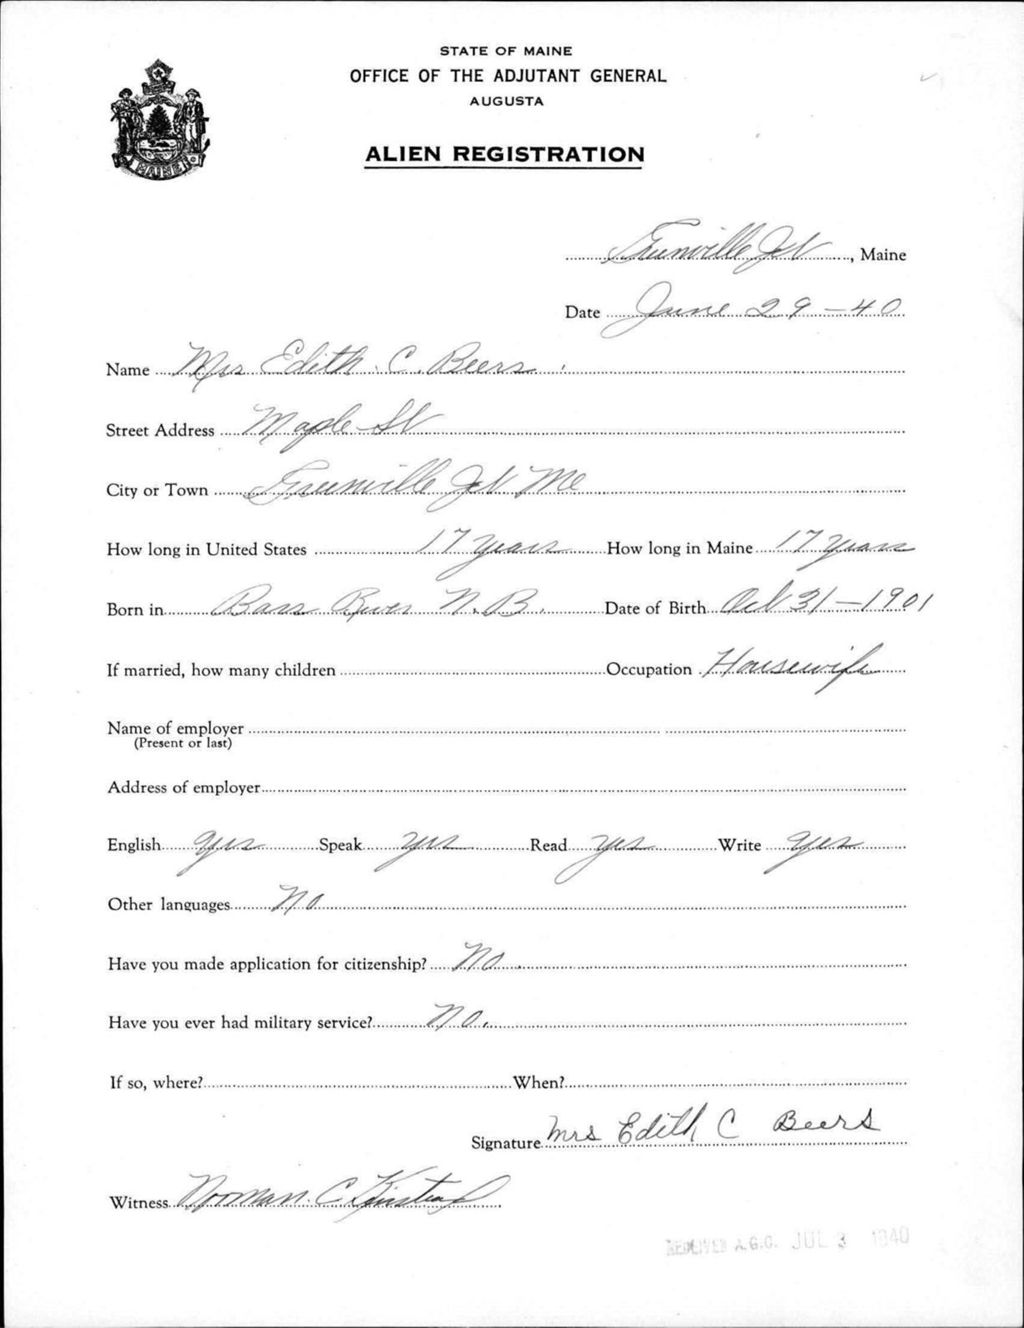 STATE OF MAINE
OFFICE OF THE ADJUTANT GENERAL
AUGUSTA
MAINE
ALIEN REGISTRATION
Greenville Jct, Maine
Date June 29-40
Name Mrs Edith C. Beers
Street Address Maple St
City or Town Greenville Jct Me
How long in United States 17 years How long in Maine 17 years
Born in Bass River N.B. Date of Birth Oct 31-1901
If married, how many children Occupation Housewife
Name of employer
(Present or last)
Address of employer
English yes Speak yes Read yes Write yes
Other languages No
Have you made application for citizenship? No
Have you ever had military service? No.
If so, where? When?
Signature Mrs Edith C Beers
Witness Norman C Kinstead
RECEIVED A.G.O. JUL 3 1940